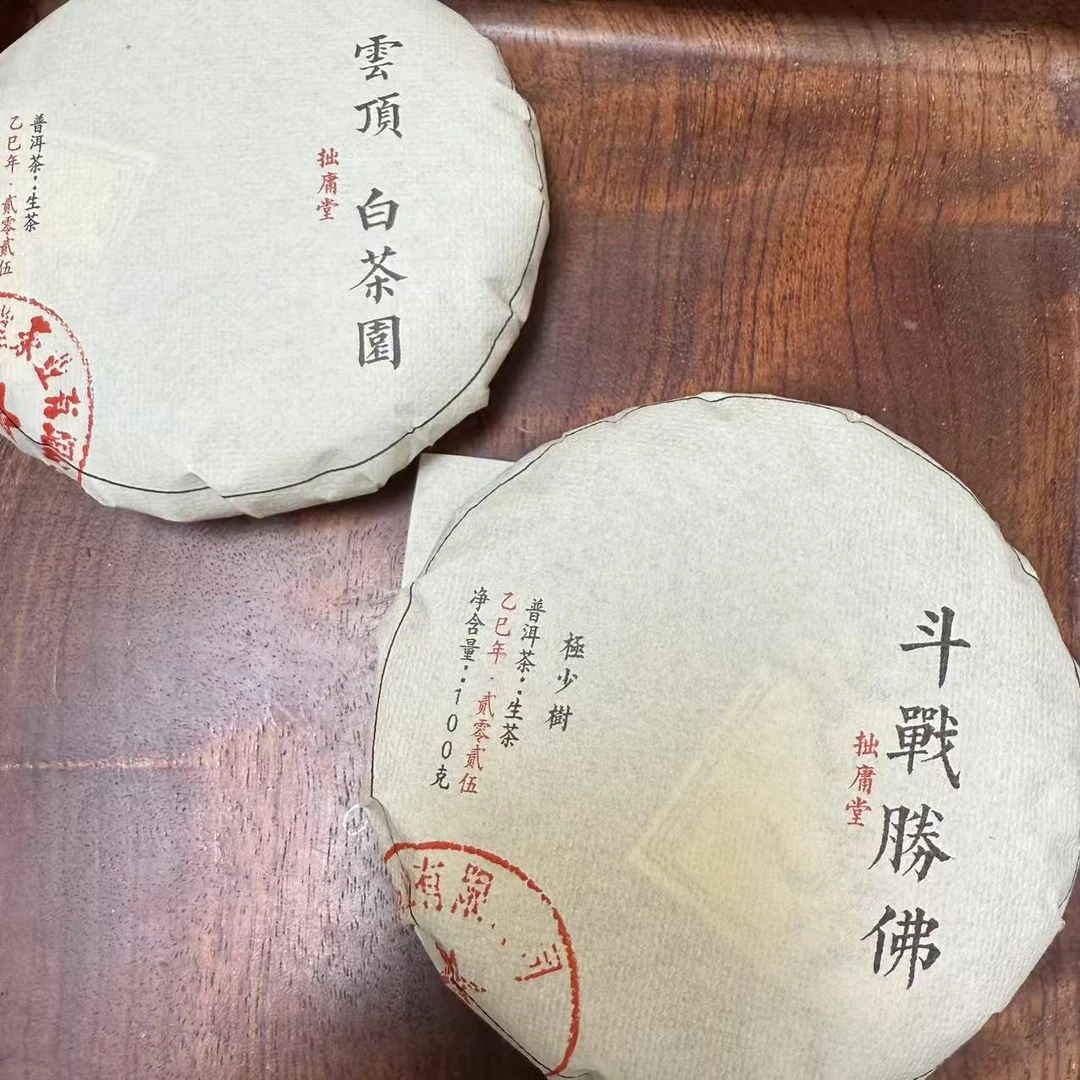 雲頂 白茶園
拙庸堂
普洱茶：生茶
乙巳年·貳零貳伍
斗戰勝佛
拙庸堂
極少樹
普洱茶：生茶
乙巳年·貳零貳伍
净含量：100克